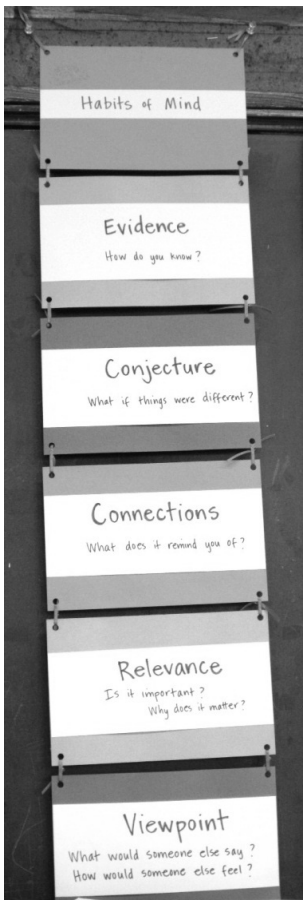 Habits of Mind
Evidence
How do you know?
Conjecture
What if things were different?
Connections
What does it remind you of?
Relevance
Is it important?
Why does it matter?
Viewpoint
What would someone else say?
How would someone else feel?